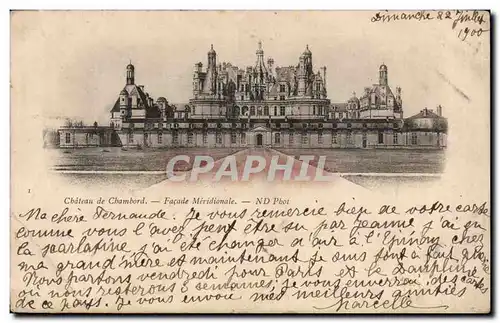 Dimanche 22 Juillet
1900
CPRPHOTO
1
Château de Chambord. — Façade Méridionale. — ND Phot
Ma chère Fernande. Je vous remercie bien de votre carte
comme vous l'avez peut être su par Jeanne j'ai eu
la scarlatine j'ai été changer d'air à l'Epinay chez
ma grand'mère et maintenant je suis tout à fait guérie
Nous partons vendredi pour Paris et le Dauphiné
où nous resterons 3 semaines; je vous enverrai des cartes
de ce pays. Je vous envoie mes meilleurs amitiés
Marcelle